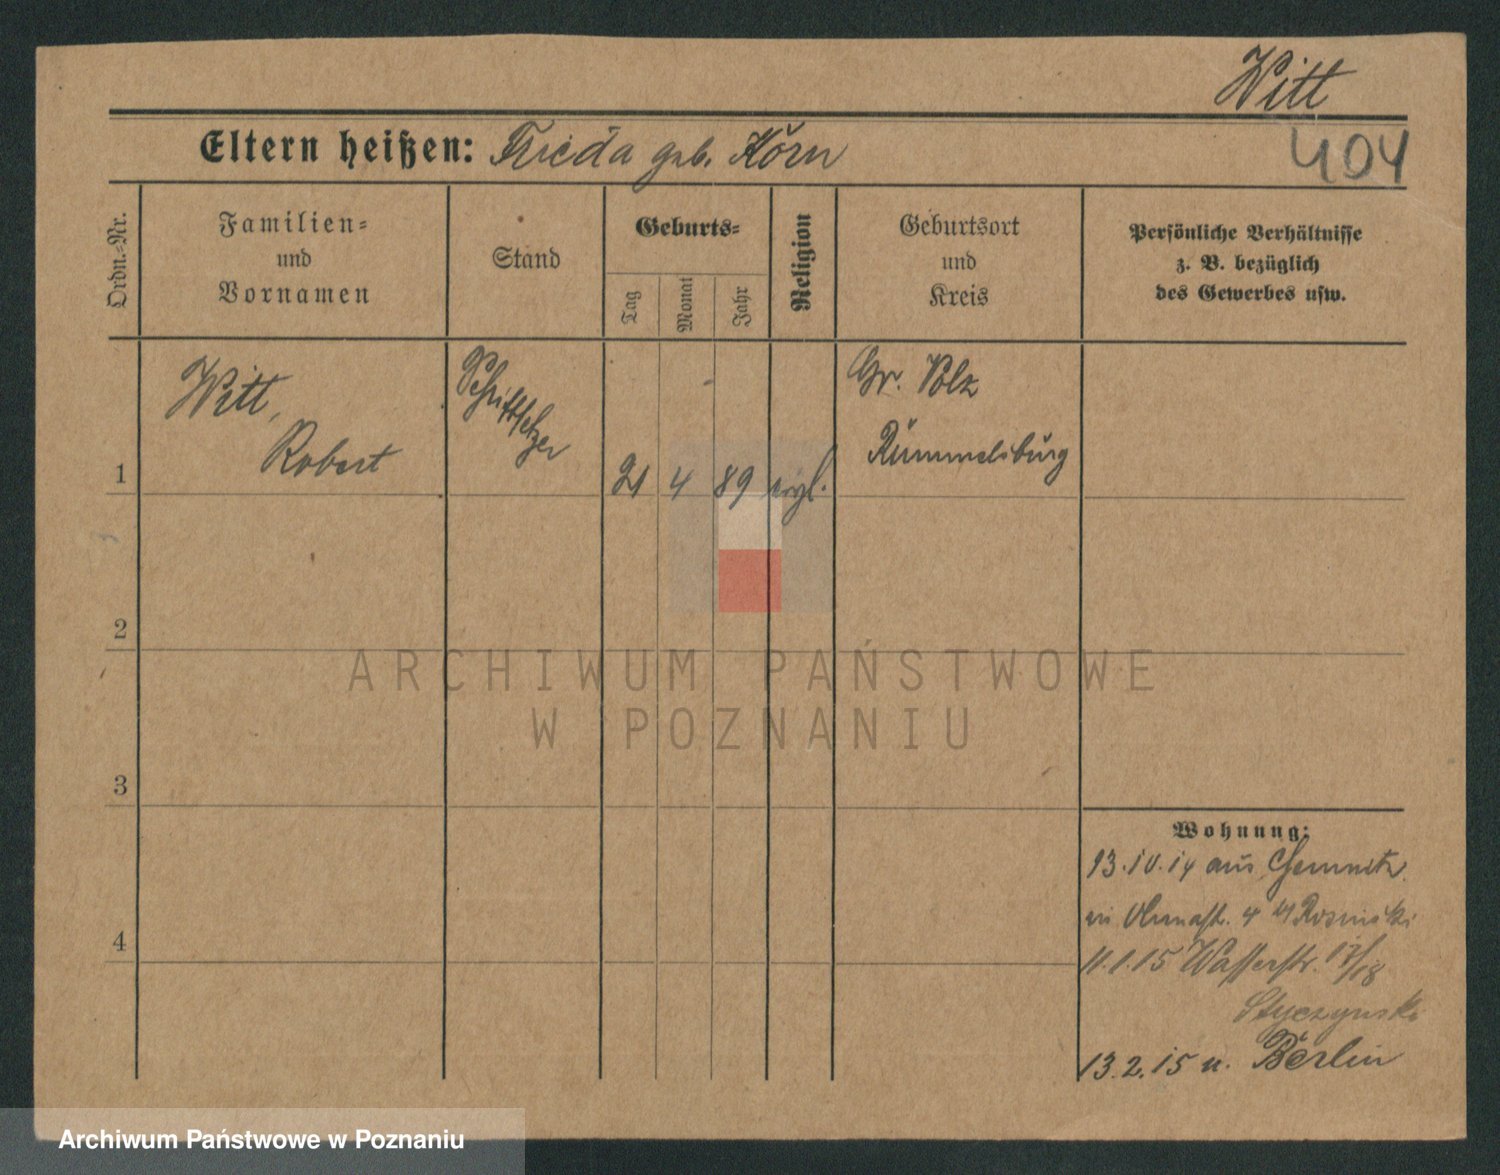 Witt
404
Eltern heißen: Frieda geb. Körn
Ordn.-Nr.
Familien-
und
Vornamen
Stand
Geburts-
Tag
Monat
Jahr
Religion
Geburtsort
und
Kreis
Persönliche Verhältnisse
z. B. bezüglich
des Gewerbes usw.
1
Witt,
Robert
Schriftsetzer
21 4 89 evgl.
Gr. Volz
Rummelsburg
2
3
4
Wohnung:
13.10.14 aus Chemnitz
4 Rosinski
11.1.15 Wasserstr. 17/18
Styczynski
13.2.15 n. Berlin
ARCHIWUM PAŃSTWOWE
W POZNANIU
Archiwum Państwowe w Poznaniu